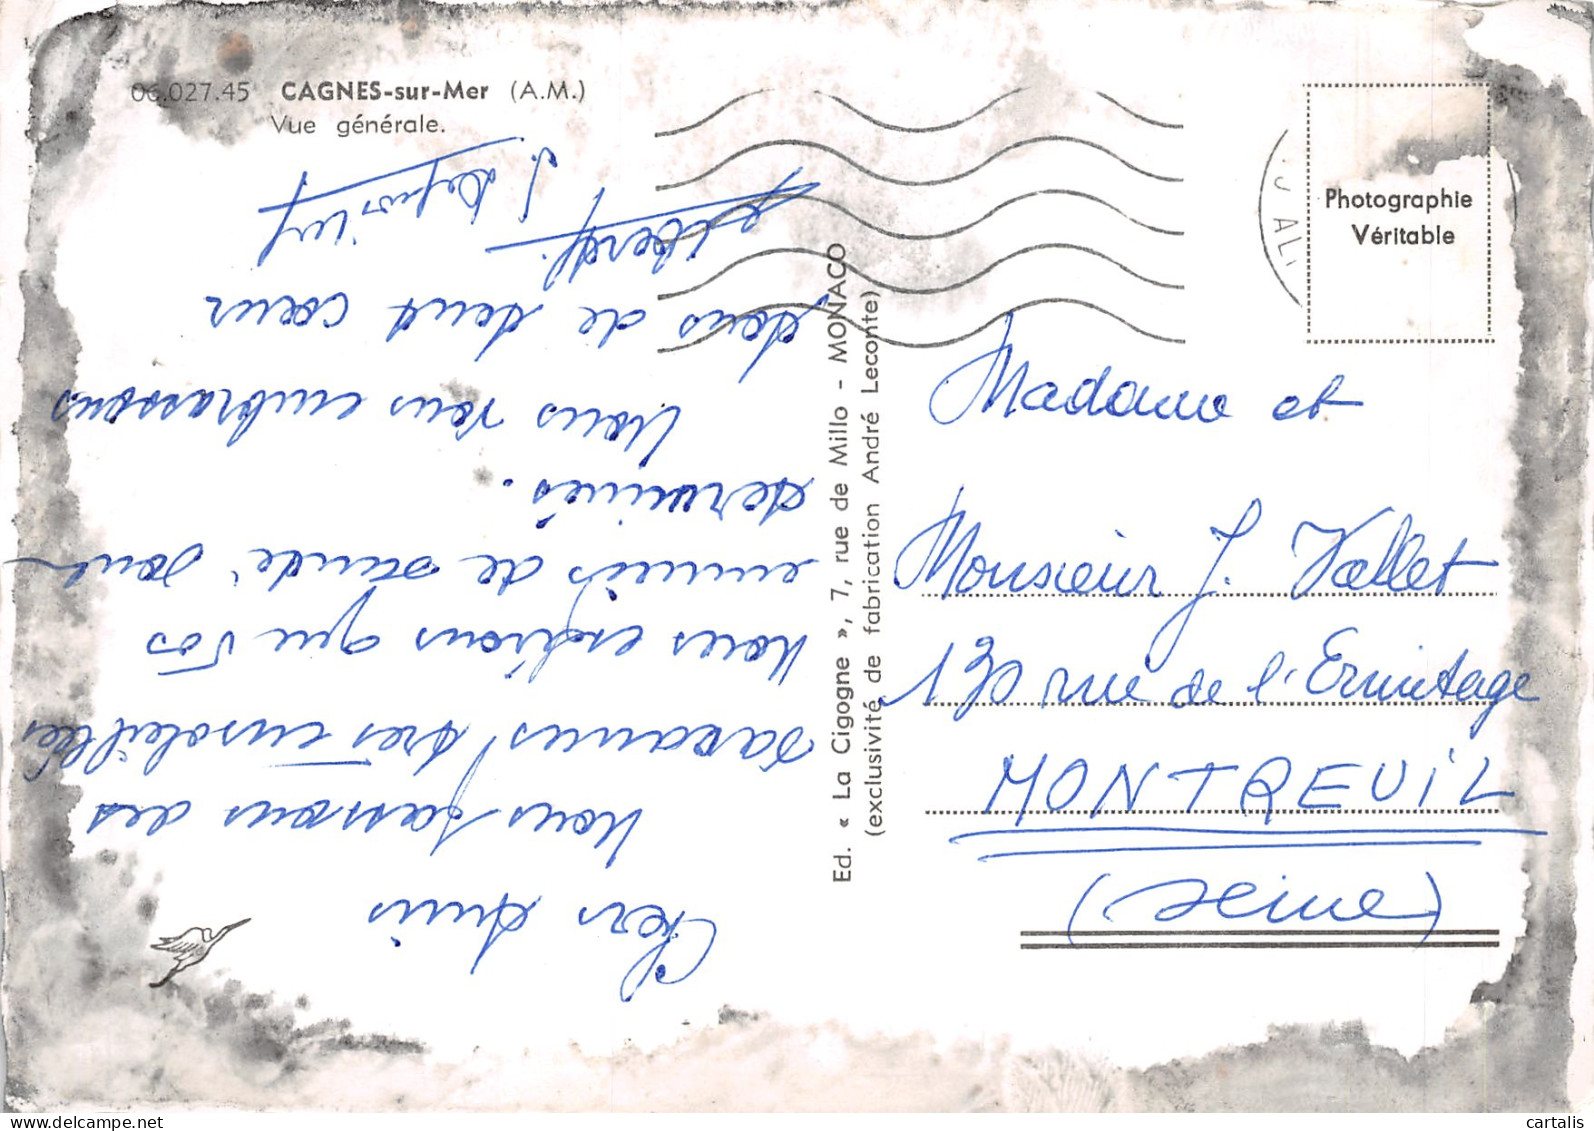 06.027.45 CAGNES-sur-Mer (A.M.)
Vue générale.
Chers Amis
Nous passons des
vacances très ensoleillées
Nous espérons que vos
ennuis de santé sont
terminés.
Nous vous embrassons
tous de tout cœur
Ed. « La Cigogne », 7, rue de Millo - MONACO
(exclusivité de fabrication André Leconte)
Photographie
Véritable
Madame et
Monsieur J. Vallet
130 rue de l'Ermitage
MONTREUIL
(Seine)
cartalis
delcampe.net